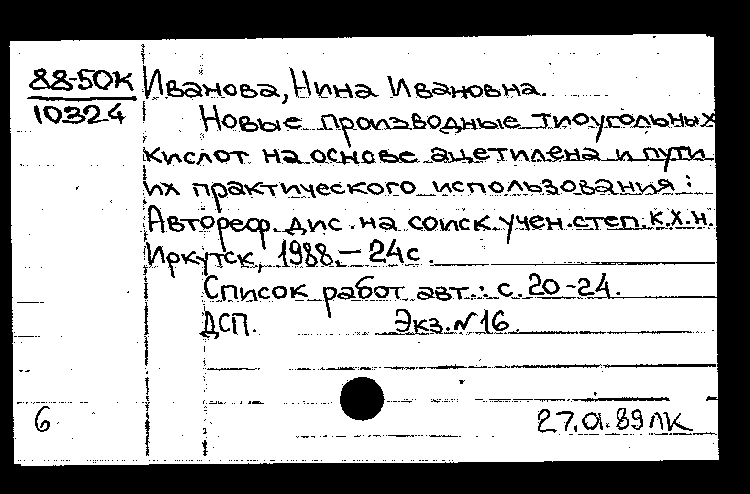 88-50К
10324
Иванова, Нина Ивановна.
Новые производные тиоугольных
кислот на основе ацетилена и пути
их практического использования:
Автореф. дис. на соиск. учен. степ. к.х.н.
Иркутск, 1988.- 24с.
Список работ авт.: с. 20-24.
ДСП. Экз. №16.
6 27.01.89 ЛК